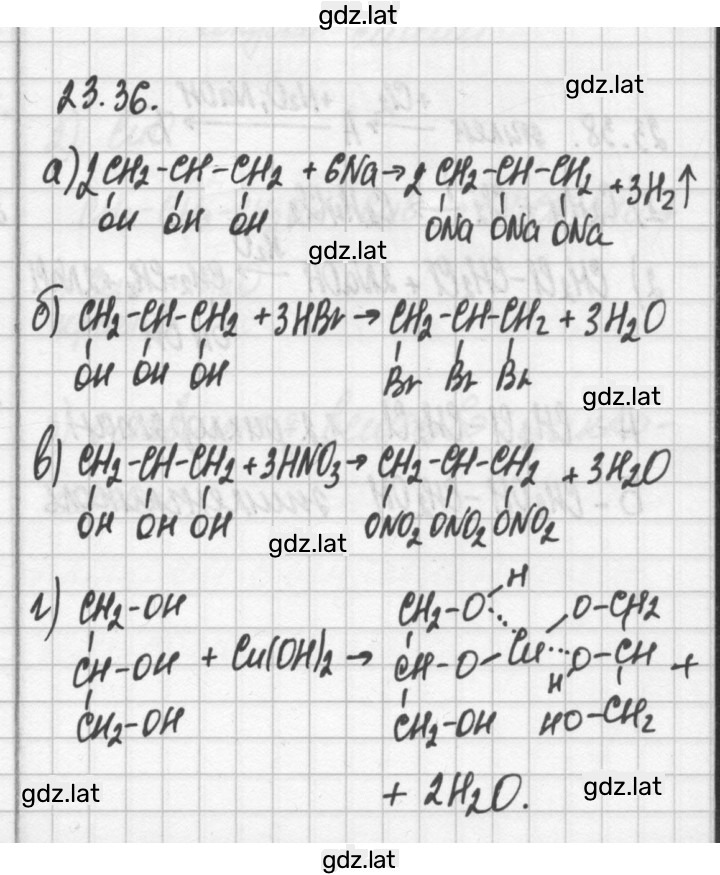 gdz.lat
23.36.
gdz.lat
а) 2 CH2-CH-CH2 + 6Na → 2 CH2-CH-CH2 + 3H2↑
OH OH OH ONa ONa ONa
gdz.lat
б) CH2-CH-CH2 + 3HBr → CH2-CH-CH2 + 3H2O
OH OH OH Br Br Br
gdz.lat
в) CH2-CH-CH2 + 3HNO3 → CH2-CH-CH2 + 3H2O
OH OH OH ONO2 ONO2 ONO2
gdz.lat
H
г) CH2-OH CH2-O O-CH2
CH-OH + Cu(OH)2 → CH-O-Cu...O-CH +
H
CH2-OH CH2-OH HO-CH2
gdz.lat + 2H2O. gdz.lat
gdz.lat